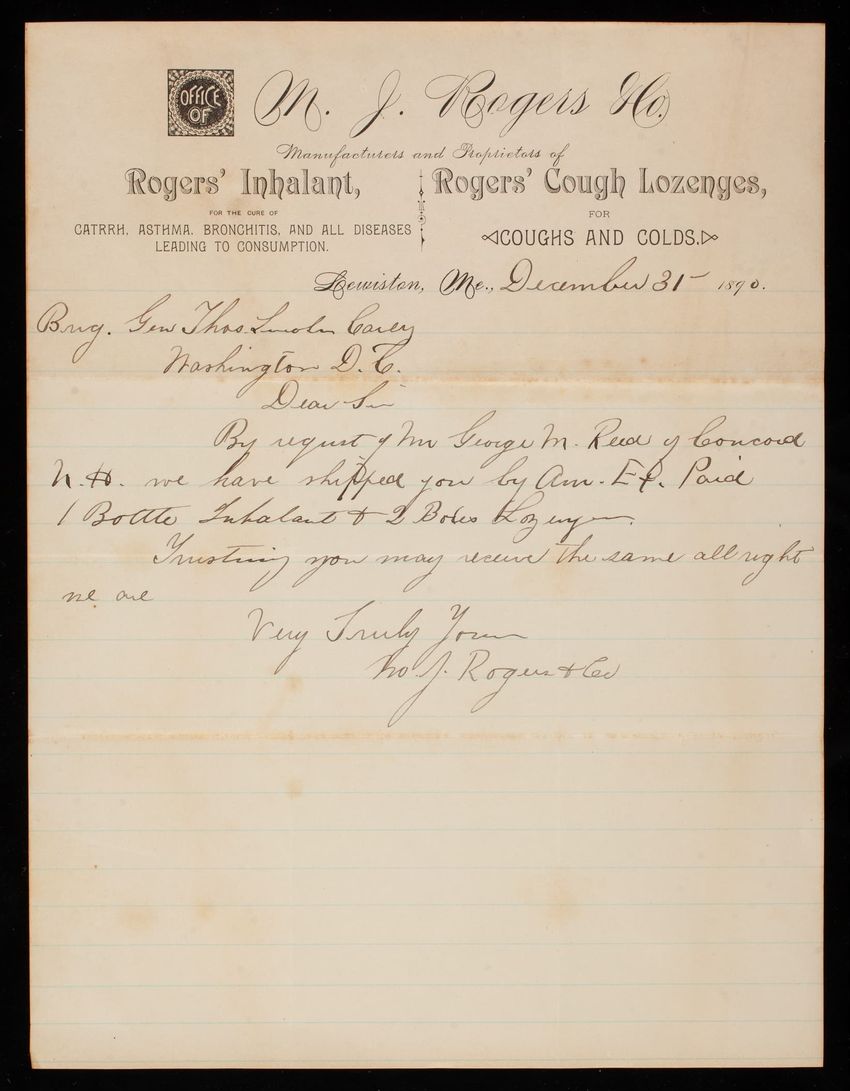 OFFICE OF
M. J. Rogers & Co.
Manufacturers and Proprietors of
Rogers' Inhalant,
FOR THE CURE OF
CATRRH, ASTHMA, BRONCHITIS, AND ALL DISEASES
LEADING TO CONSUMPTION.
Rogers' Cough Lozenges,
FOR
COUGHS AND COLDS.
Lewiston, Me., December 31 1890.
Brig. Gen Thos. Lincoln Casey
Washington D.C.
Dear Sir
By request of Mr George M. Reed of Concord
N.H. we have shipped you by Am. Ex. Paid
1 Bottle Inhalant & 2 Boxes Lozenges.
Trusting you may receive the same all right
we are
Very Truly Yours
M. J. Rogers & Co